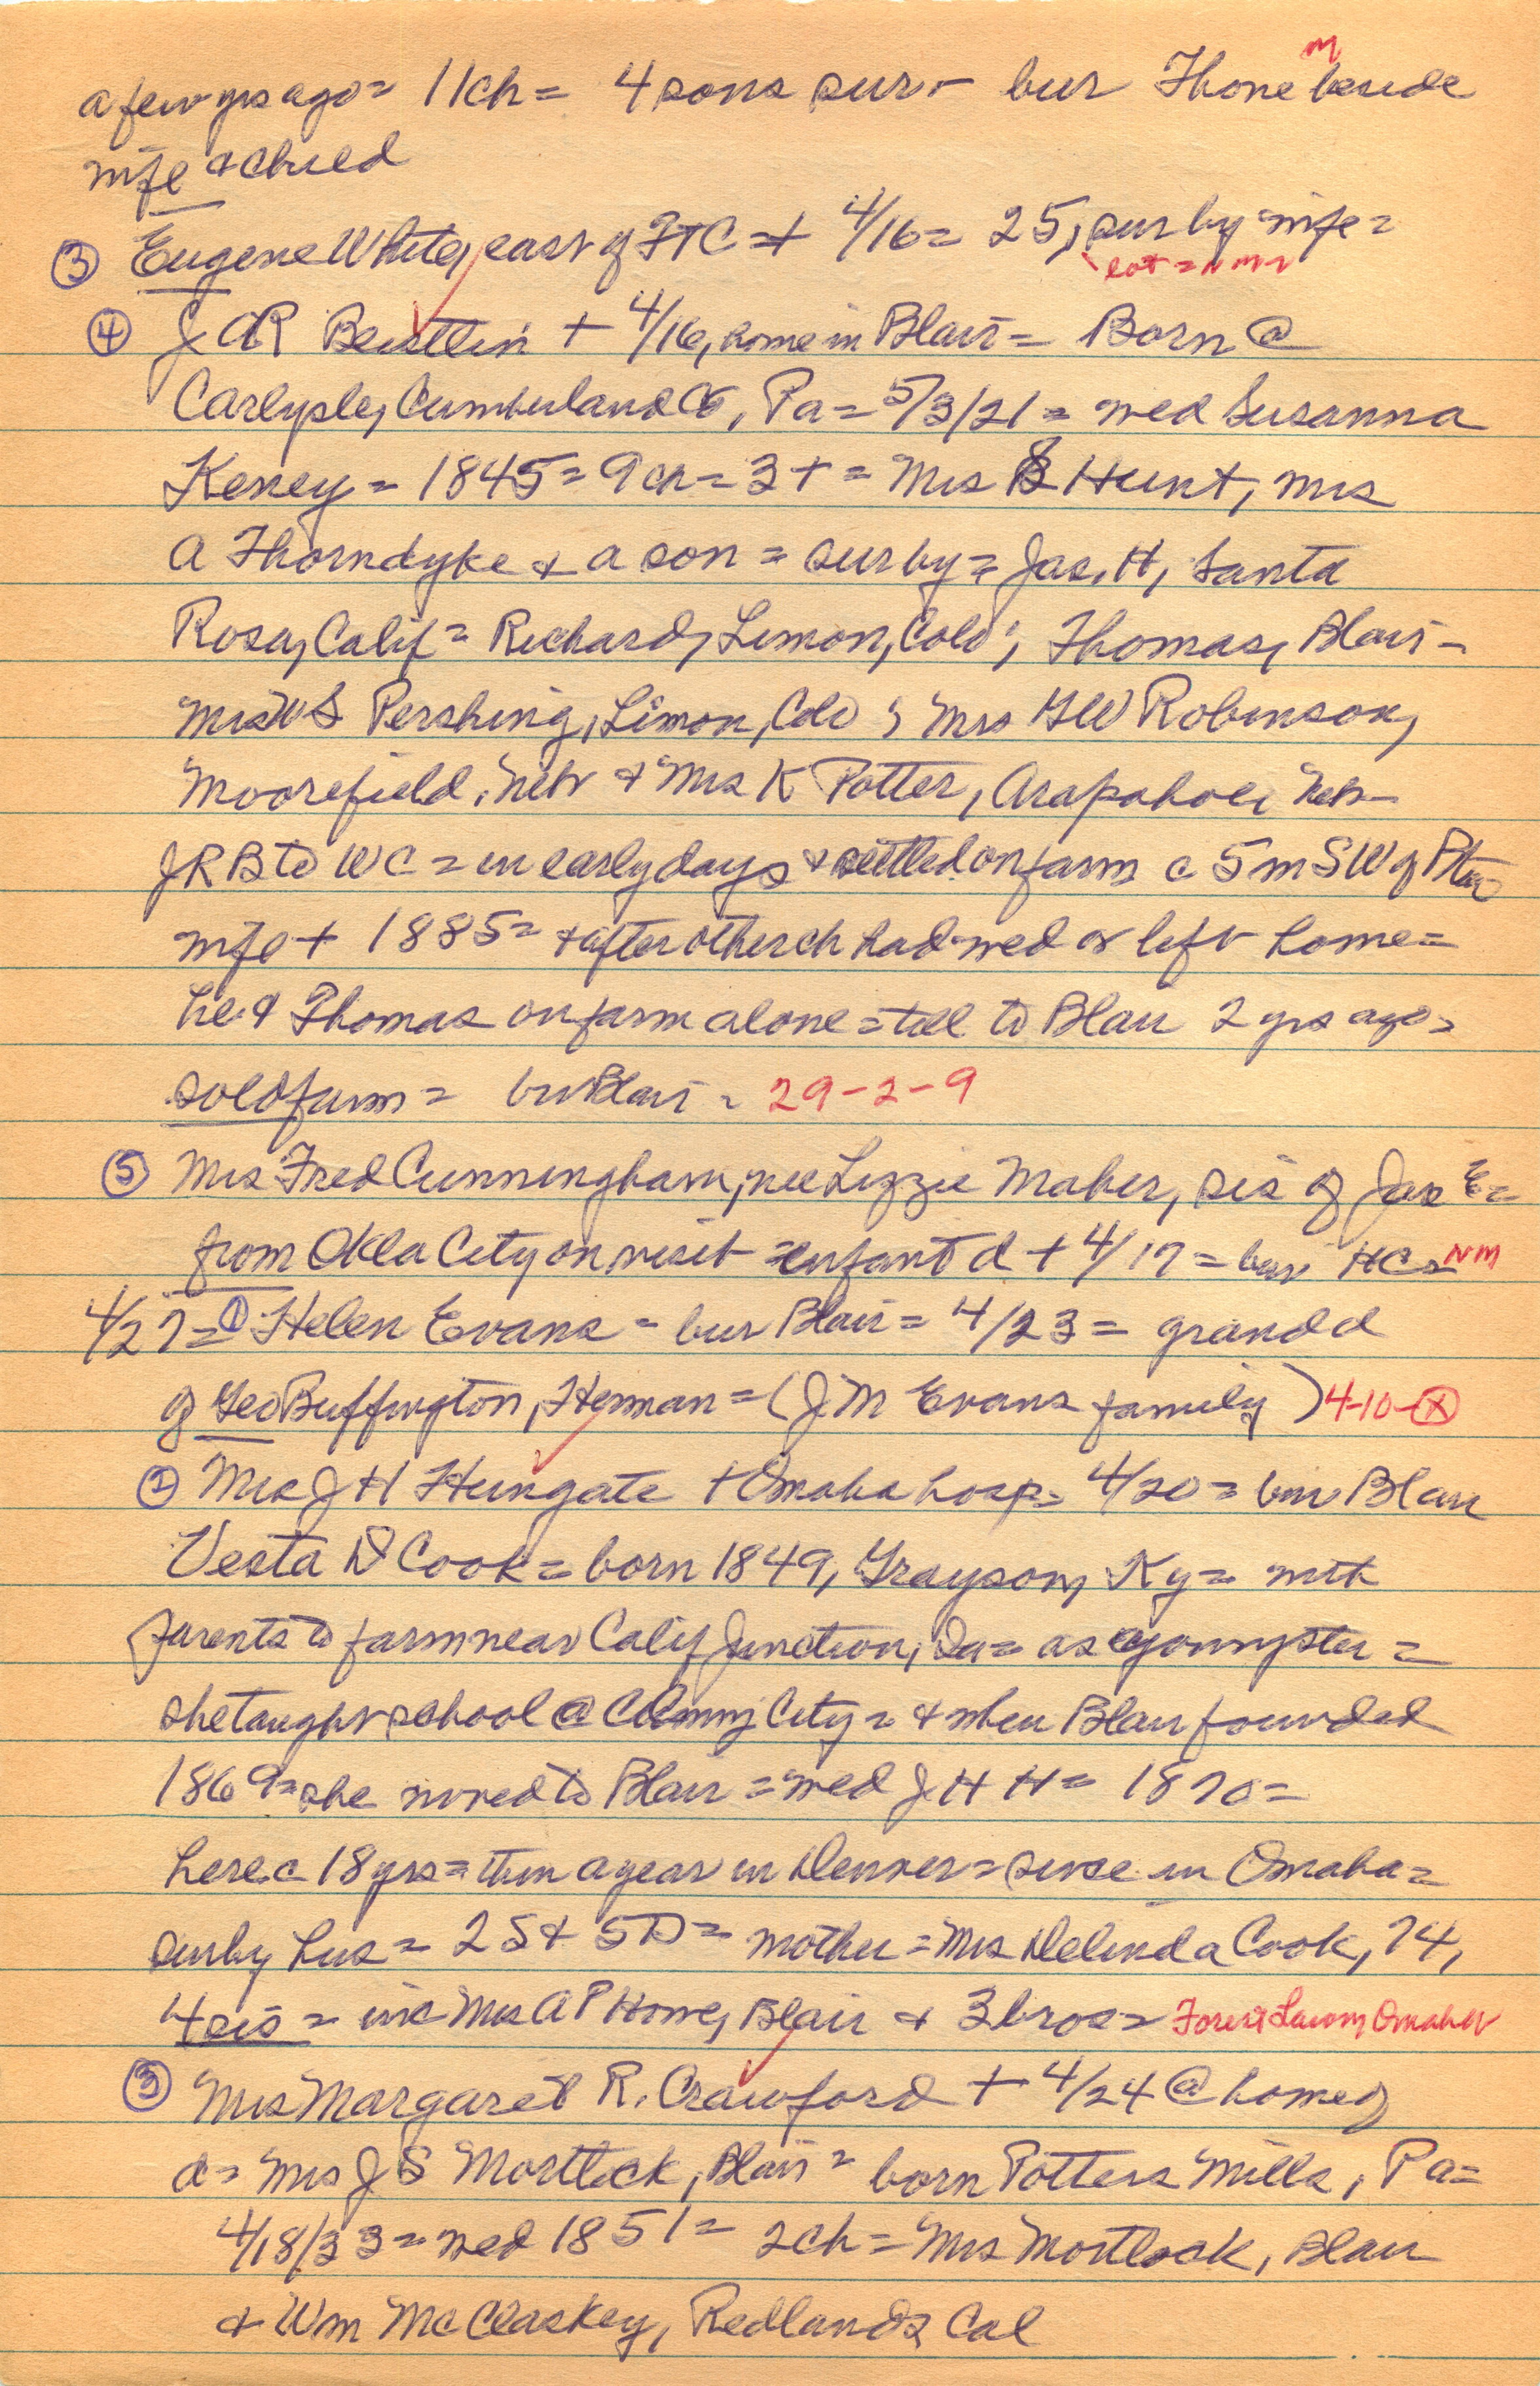 a few yrs ago = 11ch = 4 sons sur - bur Fhone m beside
wife & child
③ Eugene White, east of FTC = + 4/16 = 25, sur by wife =
lot = N M
④ J R + 4/16, home in Blair = Born @
Carlysle, Cumberland Co, Pa = 5/3/21 = wed Susanna
Keney = 1845 = 9ch = 3+ = Mrs S Hunt, Mrs
A Thorndyke & a son = sur by = Jas. H, Santa
Rosa, Calif = Richard, Limon, Colo; Thomas, Blair -
Mrs W S Pershing, Limon, Colo; Mrs GW Robinson,
Moorefield, Neb & Mrs K Potter, Arapahoe, Neb -
JRB to WC = in early days & settled on farm c 5m SW of
wife + 1885 = & after other ch had wed or left home =
he & Thomas on farm alone = till to Blair 2 yrs ago =
sold farm = bur Blair - 29-2-9
⑤ Mrs Fred Cunningham, nee Lizzie Maher, sis of Jas E =
from Okla City on visit = infant d + 4/17 = bur HC = NM
4/27 = ① Helen Evans - bur Blair = 4/23 = grand d
of Geo Buffington, Herman = (J M Evans family) 4-10-Ⓧ
② Mrs J H Hungate + Omaha hosp = 4/20 = bur Blair
Vesta D Cook = born 1849, Grayson, Ky = with
parents to farm near Calif Junction, Ia = as a youngster =
she taught school @ Cuming City = & when Blair founded
1869 = she moved to Blair = wed J H H = 1870 =
here c 18 yrs = then a year in Denver = since in Omaha =
sur by hus = 2S & 5D = mother = Mrs Delinda Cook, 74,
4 sis = inc Mrs A P Howe, Blair & 3 bros = Forest Lawn, Omaha
③ Mrs Margaret R. Crawford + 4/24 @ home of
d = Mrs J S Mortlock, Blair = born Potters Mills, Pa =
4/18/33 = wed 1851 = 2ch = Mrs Mortlock, Blair
& Wm McClaskey, Redlands Cal